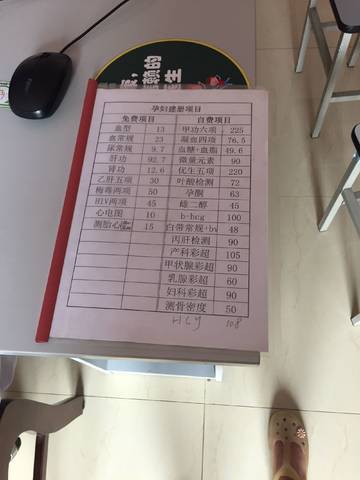 孕妇建册项目
免费项目 自费项目
血型 13 甲功六项 225
血常规 23 凝血四项 76.5
尿常规 9.7 血糖+血脂 49.6
肝功 92.7 微量元素 90
肾功 12.6 优生五项 220
乙肝五项 30 叶酸检测 72
梅毒两项 50 孕酮 63
HIV两项 45 雌二醇 45
心电图 10 b-hcg 100
测胎心 15 白带常规+bv 48
丙肝检测 90
产科彩超 105
甲状腺彩超 90
乳腺彩超 60
妇科彩超 90
测骨密度 50
HCY 108